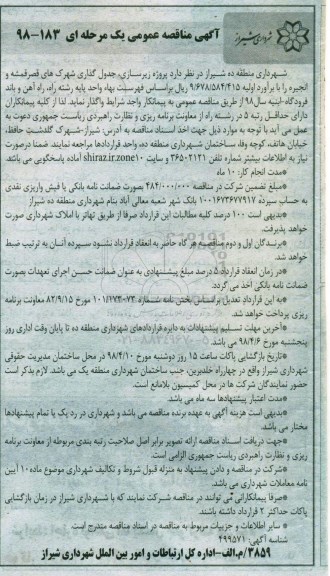 شهرداری شیراز
آگهی مناقصه عمومی یک مرحله ای ۱۸۳-۹۸
شهرداری منطقه ده شیراز در نظر دارد پروژه زیرسازی، جدول گذاری شهرک های قصرقمشه و
انجیره را با برآورد اولیه ۹/۶۷۸/۵۸۴/۴۱۵ ریال براساس فهرست بهاء واحد پایه رشته راه، راه آهن و باند
فرودگاه-ابنیه سال ۹۸ از طریق مناقصه عمومی به پیمانکار واجد شرایط واگذار نماید. لذا از کلیه پیمانکاران
دارای حداقل رتبه ۵ در رشته راه از معاونت برنامه ریزی و نظارت راهبردی ریاست جمهوری دعوت به
عمل می آید با توجه به موارد ذیل جهت اخذ اسناد مناقصه به آدرس: شیراز-شهرک گلدشت حافظ،
خیابان هاتف، کوچه وفا، ساختمان شهرداری منطقه ده، واحد قراردادها مراجعه نمایند. ضمنا درصورت
نیاز به اطلاعات بیشتر شماره تلفن ۳۶۵۰۲۱۲۱ و سایت shiraz.ir.zone۱۰ آماده پاسخگویی می باشد.
*مدت انجام کار: ۱۰ ماه
*مبلغ تضمین شرکت در مناقصه ۴۸۴/۰۰۰/۰۰۰ بصورت ضمانت نامه بانکی یا فیش واریزی نقدی
به حساب سپرده ۱۰۰۱۶۷۳۶۷۷۹۱۷ بانک شهر شعبه معالی آباد بنام شهرداری منطقه ده شیراز
*بدیهی است ۱۰۰ درصد کلیه مطالبات این قرارداد صرفا از طریق تهاتر با املاک شهرداری صورت
خواهد پذیرفت.
*برندگان اول و دوم مناقصه هر گاه حاضر به انعقاد قرارداد نشوند سپرده آنان به ترتیب ضبط
خواهد شد.
*در زمان انعقاد قرارداد ۵ درصد مبلغ پیشنهادی به عنوان ضمانت حسن اجرای تعهدات بصورت
ضمانت نامه بانکی اخذ می گردد.
*به این قرارداد تعدیل براساس بخش نامه شماره ۱۰۱/۱۷۳-۷۳ مورخ ۸۲/۹/۱۵ معاونت برنامه
ریزی پرداخت خواهد شد.
*آخرین مهلت تسلیم پیشنهادات به دایره قراردادهای شهرداری منطقه ده تا پایان وقت اداری روز
پنجشنبه مورخ ۹۸/۴/۶ می باشد.
*تاریخ بازگشایی پاکات ساعت ۱۵ روز دوشنبه مورخ ۹۸/۴/۱۰ در محل ساختمان مدیریت حقوقی
شهرداری شیراز واقع در چهارراه خلدبرین، جنب ساختمان شهرداری منطقه یک می باشد. لازم بذکر است
حضور نمایندگان شرکت ها در محل کمیسیون بلامانع است.
*مدت اعتبار پیشنهادها سه ماه می باشد.
*بدیهی است هزینه آگهی به عهده برنده مناقصه می باشد و شهرداری در رد یک یا تمام پیشنهادها
مختار می باشد.
*جهت دریافت اسناد مناقصه ارائه تصویر برابر اصل صلاحیت رتبه بندی مربوطه از معاونت برنامه
ریزی و نظارت راهبردی ریاست جمهوری الزامی است.
*شرکت در مناقصه و دادن پیشنهاد به منزله قبول شروط و تکالیف شهرداری موضوع ماده ۱۰ آیین
نامه معاملات شهرداری می باشد.
*صرفا پیمانکارانی می توانند در مناقصه شرکت نمایند که با شهرداری شیراز در زمان بازگشایی
پاکات حداکثر ۲ قرارداد داشته باشند.
* سایر اطلاعات و جزییات مربوط به مناقصه در اسناد مناقصه مندرج است.
شناسه آگهی: ۴۹۹۵۷۱
۳۸۵۹/م.الف-اداره کل ارتباطات و امور بین الملل شهرداری شیراز